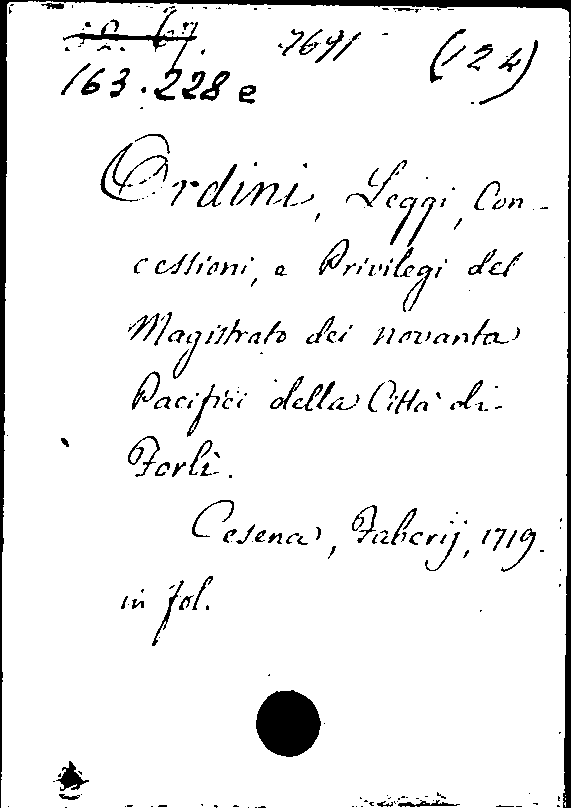 52. 67. 7691 (124)
163.228 e
Ordini, Leggi, Con-
cessioni, e Privilegi del
Magistrato dei novanta
Pacifici della Città di
Forlì.
Cesena, Faberij, 1719.
in fol.